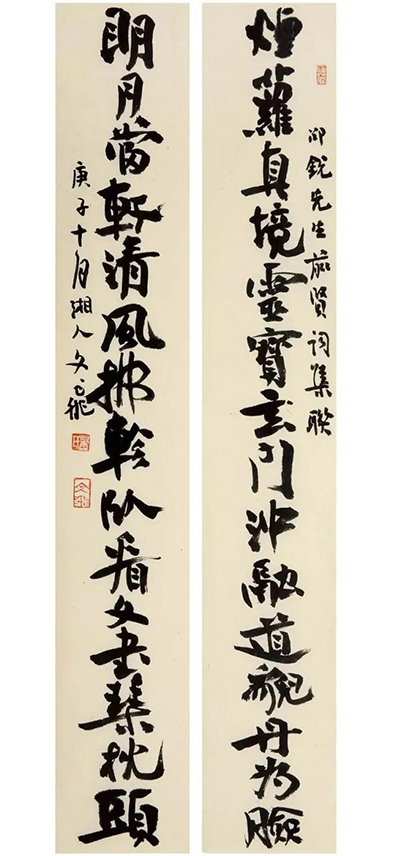 煙蘿真境靈寶玄門沖融道貌丹為臉
邵銳先生前賢詞集聯
明月當軒清風拂軫臥看文書琴枕頭
庚子十月湘人文